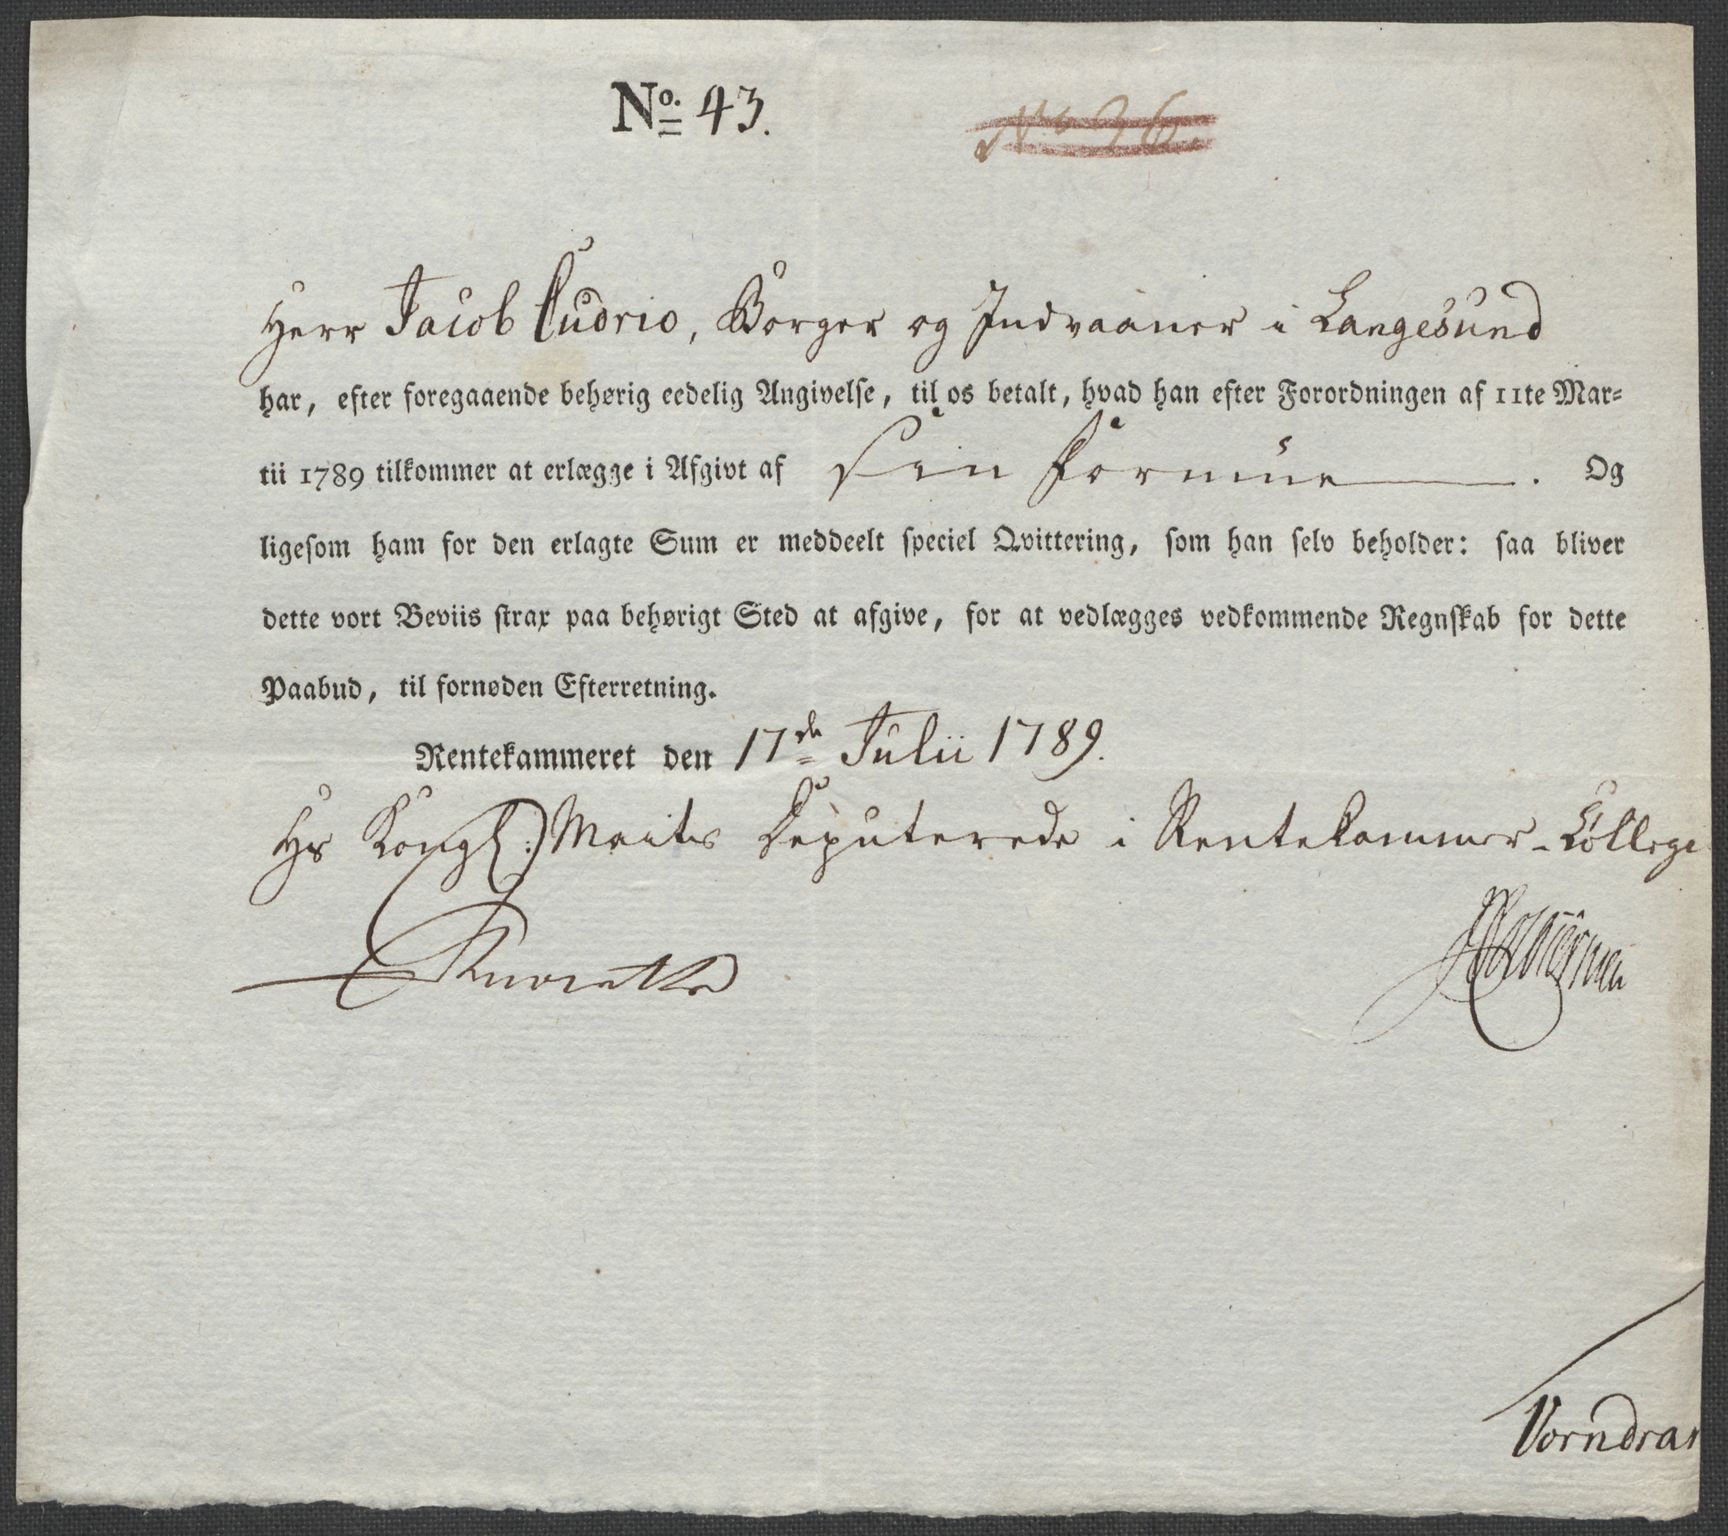 No. 43.
No 36.
Herr Jacob Cudrio, Borger og Indvaaner i Langesund
har, efter foregaaende behørig eedelig Angivelse, til os betalt, hvad han efter Forordningen af 11te Mar=
tii 1789 tilkommer at erlægge i Afgivt af sin Formue. Og
ligesom ham for den erlagte Sum er meddeelt speciel Qvittering, som han selv beholder: saa bliver
dette vort Beviis strax paa behørigt Sted at afgive, for at vedlægges vedkommende Regnskab for dette
Paabud, til fornøden Efterretning.
Rentekammeret den 17de Julii 1789.
Hs Kongl: Maits Deputerede i Rentekammer-Collegi
Vorndran